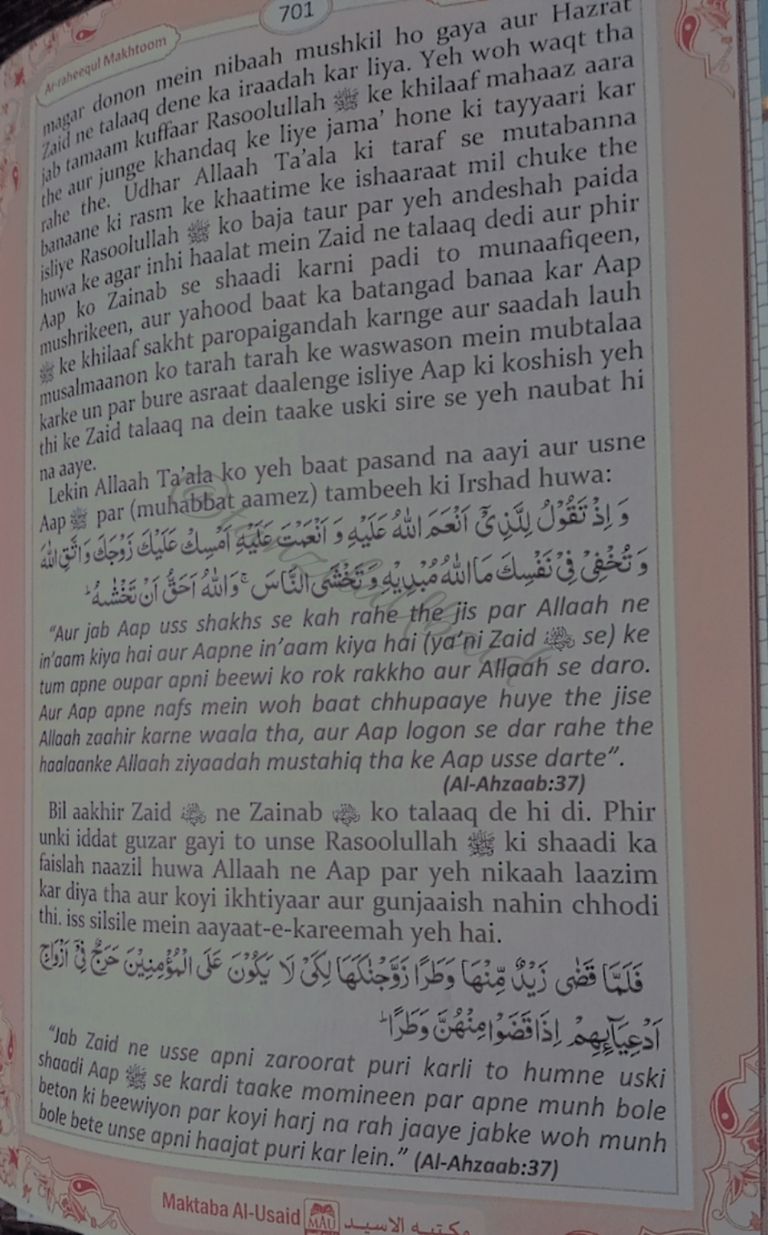 701
Ar-raheequl Makhtoom
magar donon mein nibaah mushkil ho gaya aur Hazrat
Zaid ne talaaq dene ka iraadah kar liya. Yeh woh waqt tha
jab tamaam kuffaar Rasoolullah ﷺ ke khilaaf mahaaz aara
the aur junge khandaq ke liye jama’ hone ki tayyaari kar
rahe the. Udhar Allaah Ta’ala ki taraf se mutabanna
banaane ki rasm ke khaatime ke ishaaraat mil chuke the
isliye Rasoolullah ﷺ ko baja taur par yeh andeshah paida
huwa ke agar inhi haalat mein Zaid ne talaaq dedi aur phir
Aap ko Zainab se shaadi karni padi to munaafiqeen,
mushrikeen, aur yahood baat ka batangad banaa kar Aap
ﷺ ke khilaaf sakht paropaigandah karnge aur saadah lauh
musalmaanon ko tarah tarah ke waswason mein mubtalaa
karke un par bure asraat daalenge isliye Aap ki koshish yeh
thi ke Zaid talaaq na dein taake uski sire se yeh naubat hi
na aaye.
Lekin Allaah Ta’ala ko yeh baat pasand na aayi aur usne
Aap ﷺ par (muhabbat aamez) tambeeh ki Irshad huwa:
وَ اِذْ تَقُوْلُ لِلَّذِیْۤ اَنْعَمَ اللّٰهُ عَلَیْهِ وَ اَنْعَمْتَ عَلَیْهِ اَمْسِكْ عَلَیْكَ زَوْجَكَ وَ اتَّقِ اللّٰهَ
وَ تُخْفِیْ فِیْ نَفْسِكَ مَا اللّٰهُ مُبْدِیْهِ وَ تَخْشَی النَّاسَ ۚ وَ اللّٰهُ اَحَقُّ اَنْ تَخْشٰىهُ ؕ
“Aur jab Aap uss shakhs se kah rahe the jis par Allaah ne
in’aam kiya hai aur Aapne in’aam kiya hai (ya’ni Zaid ؓ se) ke
tum apne oupar apni beewi ko rok rakkho aur Allaah se daro.
Aur Aap apne nafs mein woh baat chhupaaye huye the jise
Allaah zaahir karne waala tha, aur Aap logon se dar rahe the
haalaanke Allaah ziyaadah mustahiq tha ke Aap usse darte”.
(Al-Ahzaab:37)
Bil aakhir Zaid ؓ ne Zainab ؓ ko talaaq de hi di. Phir
unki iddat guzar gayi to unse Rasoolullah ﷺ ki shaadi ka
faislah naazil huwa Allaah ne Aap par yeh nikaah laazim
kar diya tha aur koyi ikhtiyaar aur gunjaaish nahin chhodi
thi. iss silsile mein aayaat-e-kareemah yeh hai.
فَلَمَّا قَضٰی زَیْدٌ مِّنْهَا وَطَرًا زَوَّجْنٰكَهَا لِكَیْ لَا یَكُوْنَ عَلَی الْمُؤْمِنِیْنَ حَرَجٌ فِیْۤ اَزْوَاجِ
اَدْعِیَآىِٕهِمْ اِذَا قَضَوْا مِنْهُنَّ وَطَرًا ؕ
“Jab Zaid ne usse apni zaroorat puri karli to humne uski
shaadi Aap ﷺ se kardi taake momineen par apne munh bole
beton ki beewiyon par koyi harj na rah jaaye jabke woh munh
bole bete unse apni haajat puri kar lein.” (Al-Ahzaab:37)
Maktaba Al-Usaid MAU مكتبه الاسيد